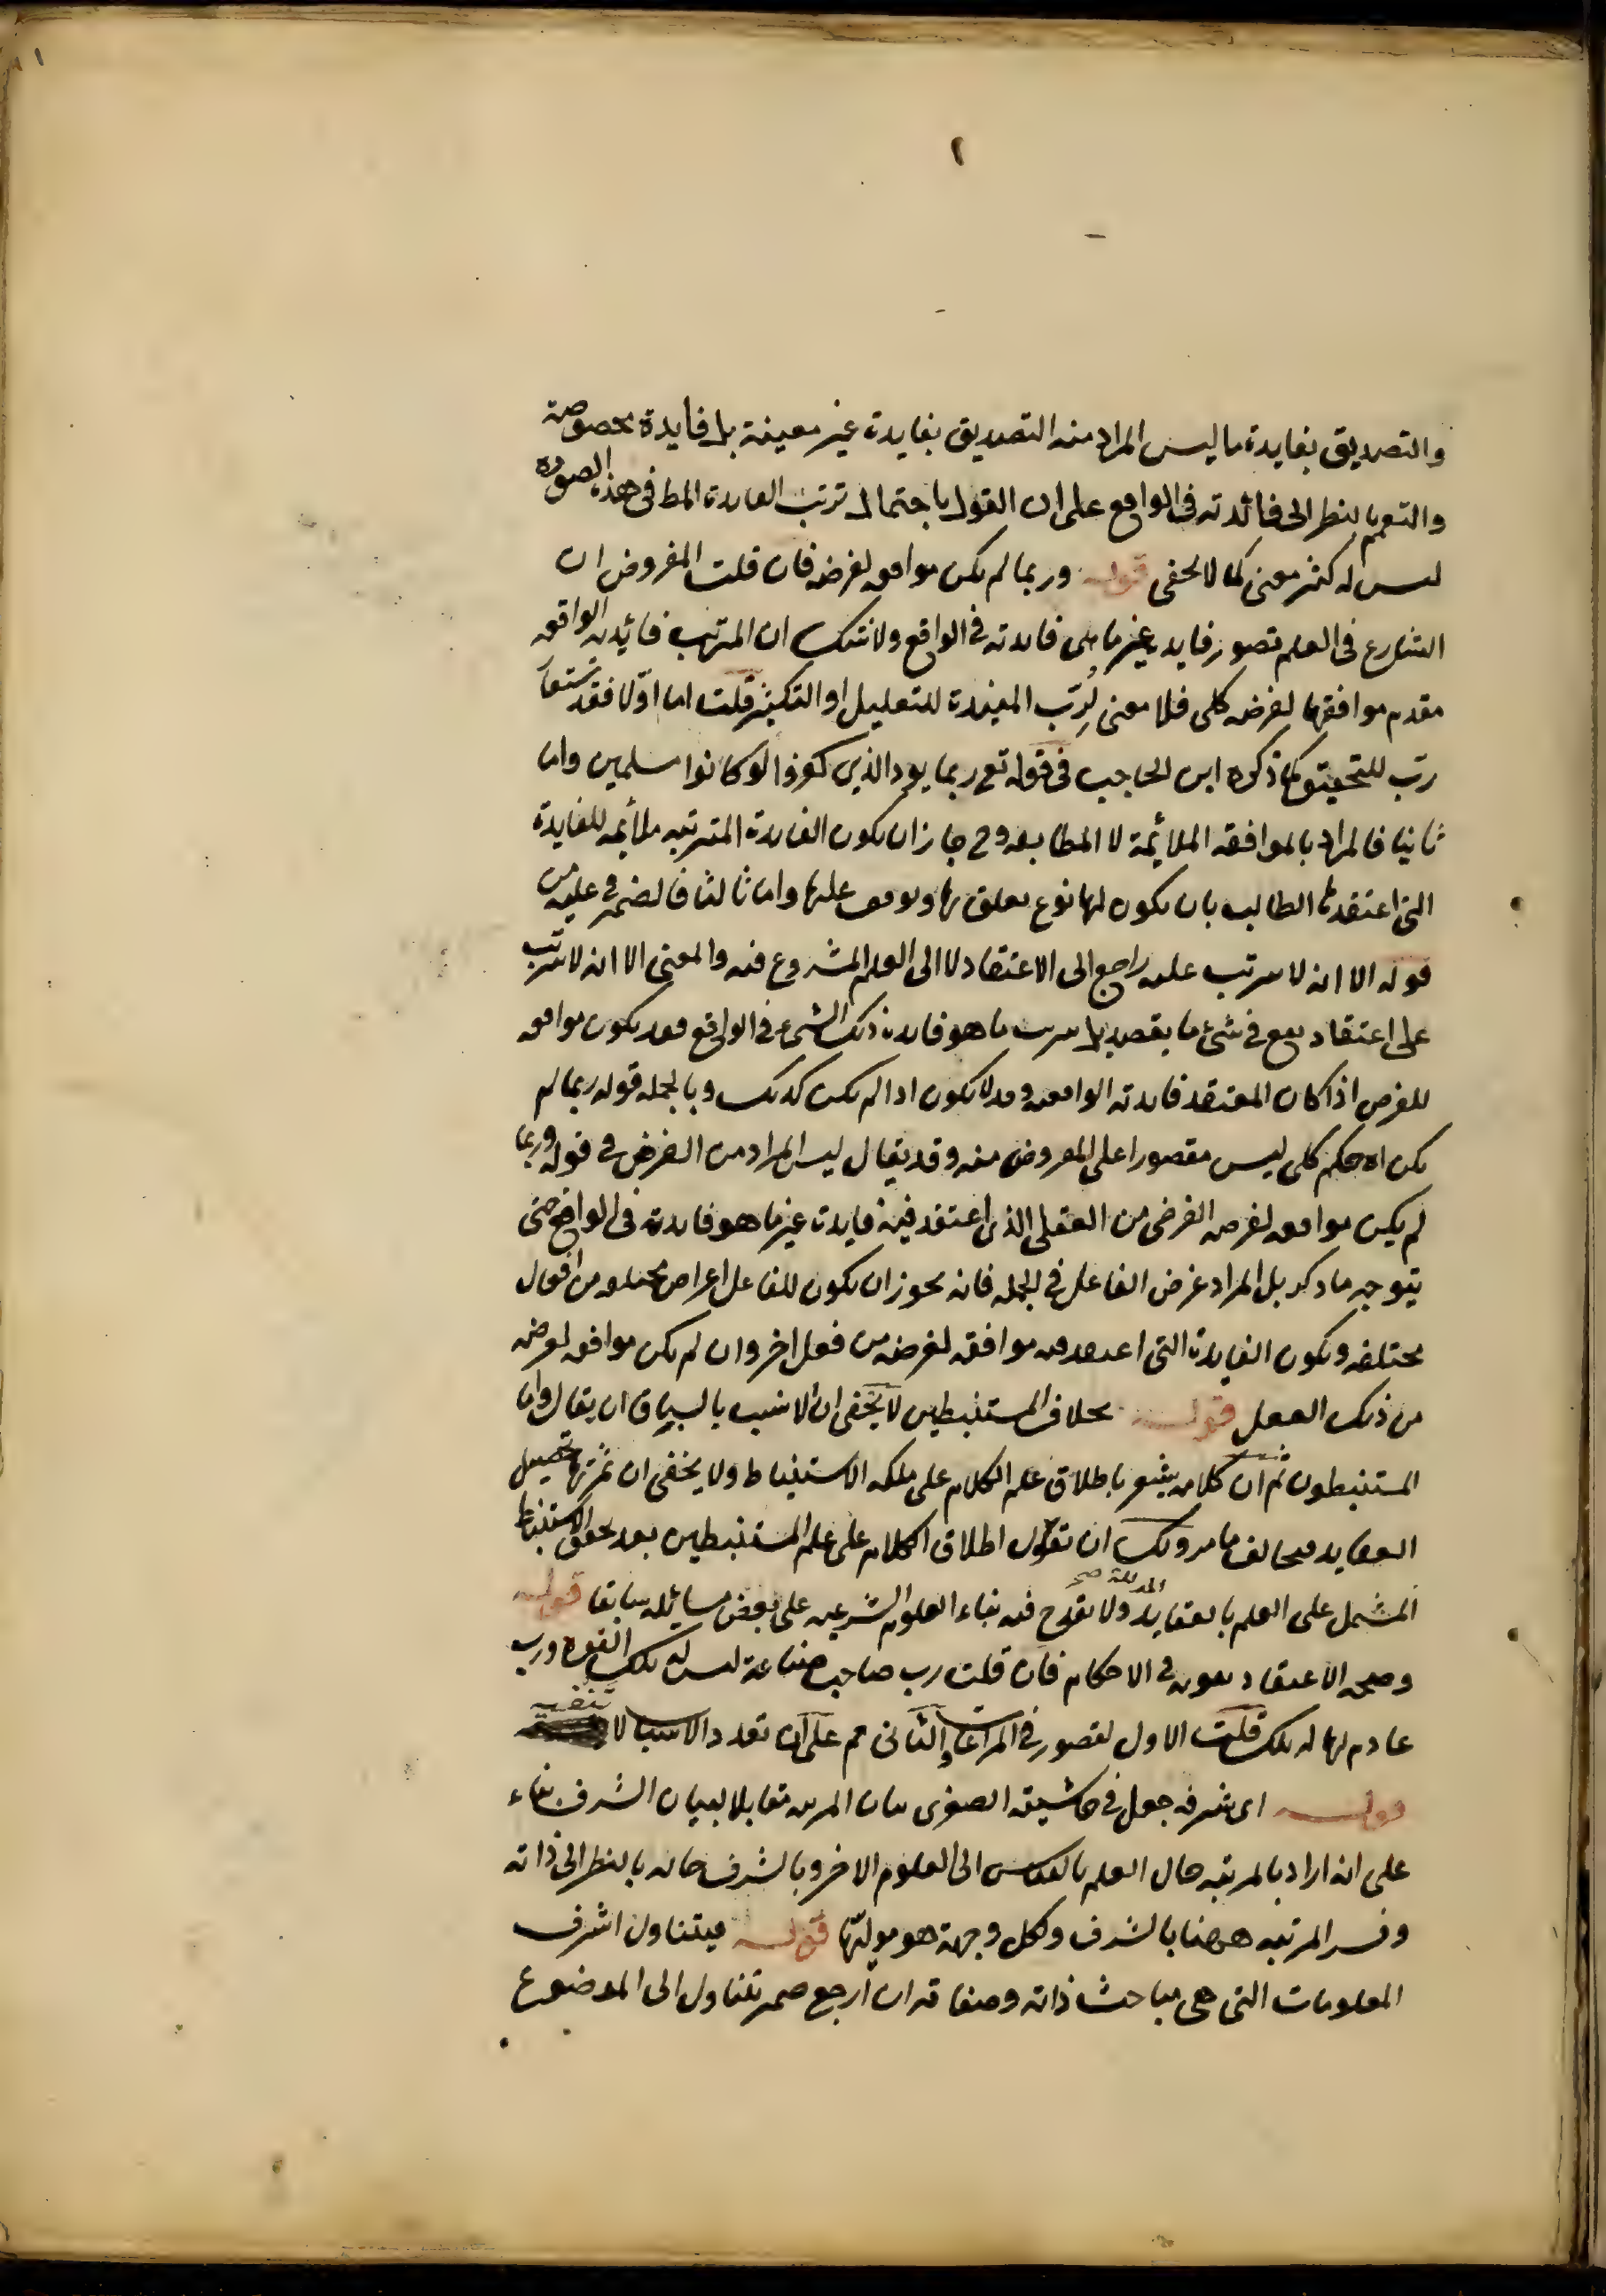 ١
والتصديق بفايدة ما ليس المراد منه التصديق بفايدة غير معينة بل فايدة مخصوصة
والتعميم بالنظر الى فائدته فى الواقع على ان القول باحتمال ترتب الفايدة المط فى هذه الصورة
ليس له كثر معنى كما لا يخفى قوله وربما لم يكن موافقه لغرضه فان قلت المفروض ان
الشارع فى العلم تصور فايده غير ما هى فايدته فى الواقع ولا شك ان المترتب فائدته الواقعه
مقدم موافقتها لغرضه كلى فلا معنى لرب المفيدة للتعليل او التكثير قلت اما اولا فقد تستعار
رب للتحقيق كما ذكره ابن الحاجب فى قوله تع ربما يود الذين كفروا لو كانوا مسلمين واما
ثانيا فالمراد بالموافقه الملائمة لا المطابقه وح جاز ان يكون الفايدة المترتبه ملائمه للفايدة
التى اعتقدها الطالب بان يكون لها نوع تعلق بها وتوقف عليها واما ثالثا فالضمير فى عليه من
قوله الا انه لا يترتب عليه راجع الى الاعتقاد لا الى العلم المشروع فيه والمعنى الا انه لا يترتب
على اعتقاد نفع فى شئ ما يقصد بل يترتب ما هو فايدة ذلك الشئ فى الواقع فقد يكون موافقه
للغرض اذا كان المعتقد فايدته الواقعه وقد لا يكون اذا لم يكن كذلك وبالجمله قوله ربما لم
يكن اه حكم كلى ليس مقصورا على المفروض منه وقد يقال ليس المراد من الغرض فى قوله وربما
لم يكن موافقه لغرضه الغرض من الفعل الذى اعتقد فيه فايدة غير ما هو فايدته فى الواقع حتى
يتوجه ما ذكر بل المراد غرض الفاعل فى الجمله فانه يجوز ان يكون للفاعل اغراض مختلفه من افعال
مختلفه ويكون الفايدة التى اعتقدها موافقه لغرضه من فعل اخر وان لم يكن موافقه لغرضه
من ذلك الفعل قوله بخلاف المستنبطين لا يخفى ان الانسب بالسياق ان يقال واما
المستنبطون ثم ان كلامه يشعر باطلاق علم الكلام على ملكه الاستنباط ولا يخفى ان ثمرتها تحصيل
العقايد فيخالف ما مر ولك ان تقول اطلاق الكلام على علم المستنبطين بعد تحقق الاستنباط
المشتمل على العلم بالعقايد المدللة صح ولا يقدح فيه بناء العلوم الشرعيه على بعض مسائله سابقا قوله
وصحه الاعتقاد بقوته فى الاحكام فان قلت رب صاحب صناعة ليس له تلك القوه ورب
عادم لها له تلك قلت الاول لقصور فى المراعات والثانى مم على ان تعدد الاسباب لا ننفيه
قوله اى شرفه جعل فى حاشيته الصغرى بيان المرتبه مقابلا لبيان الشرف بناء
على انه اراد بالمرتبه حال العلم بالقياس الى العلوم الاخر وبالشرف حاله بالنظر الى ذاته
وفسر المرتبه ههنا بالشرف ولكل وجهة هو موليها قوله فيتناول اشرف
المعلومات التى هى مباحث ذاته وصفاته ان ارجع ضمير تتناول الى الموضوع